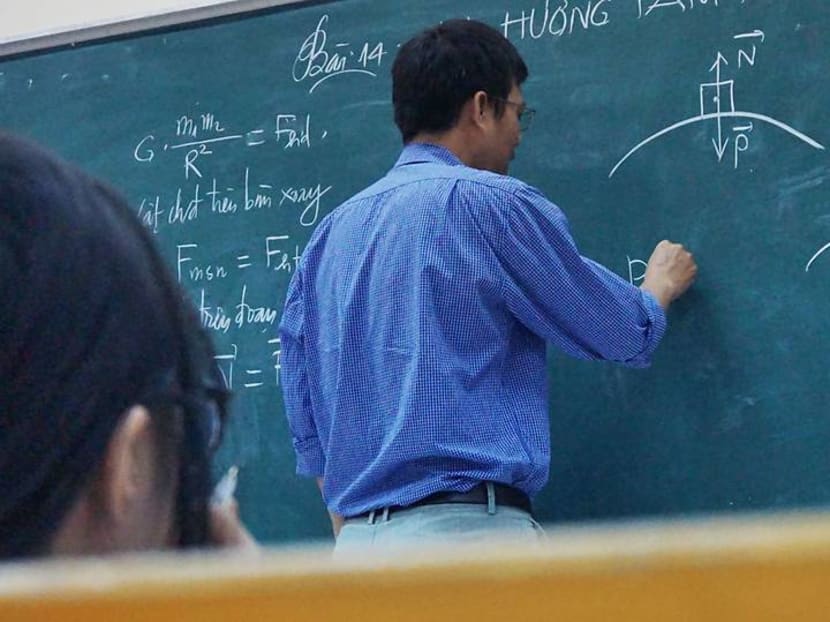 Bài 14 HƯỚNG TÂM
G. m₁m₂/R² = Fhd.
vật chđ trên bàn xoay
Fmsn = Fht
trên đoạn
N =
N
P
P